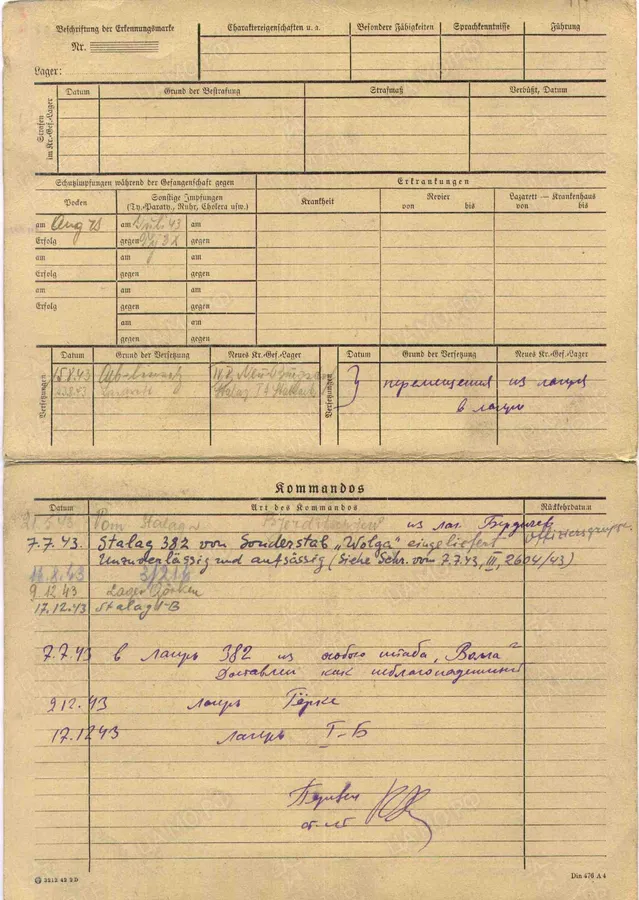 Beschriftung der Erkennungsmarke
Nr.
Lager:
Charaktereigenschaften u. a.
Besondere Fähigkeiten
Sprachkenntnisse
Führung
Strafen im Kr.-Gef.-Lager
Datum
Grund der Bestrafung
Strafmaß
Verbüßt, Datum
Schutzimpfungen während der Gefangenschaft gegen
Erkrankungen
Pocken
Sonstige Impfungen
(Ty.-Paraty., Ruhr, Cholera usw.)
Krankheit
Revier
von bis
Lazarett — Krankenhaus
von bis
am Juli 43 am
Erfolg gegen gegen
am am am
Erfolg gegen gegen
am am am
Erfolg gegen gegen
am am
gegen gegen
Versetzungen
Datum Grund der Versetzung Neues Kr.-Gef.-Lager
15.8.43
Versetzungen
Datum Grund der Versetzung Neues Kr.-Gef.-Lager
перемещения из лагеря
в лагерь
Kommandos
Datum Art des Kommandos Rückkehrdatum
21.5.43 Vom Stalag из лаг. Бердичев
7.7.43. Stalag 382 von Sonderstab „Wolga" eingeliefert Offiziersgruppe.
Unzuverlässig und aufsässig (Siehe Schr. vom 7.7.43, III, 2604/43)
9.12.43 Lager Görken
17.12.43 Stalag I-B
7.7.43 в лагерь 382 из особого штаба „Волга"
Доставлен как неблагонадежный
9.12.43 лагерь Гёрке
17.12.43 лагерь I-Б
Din 476 A 4